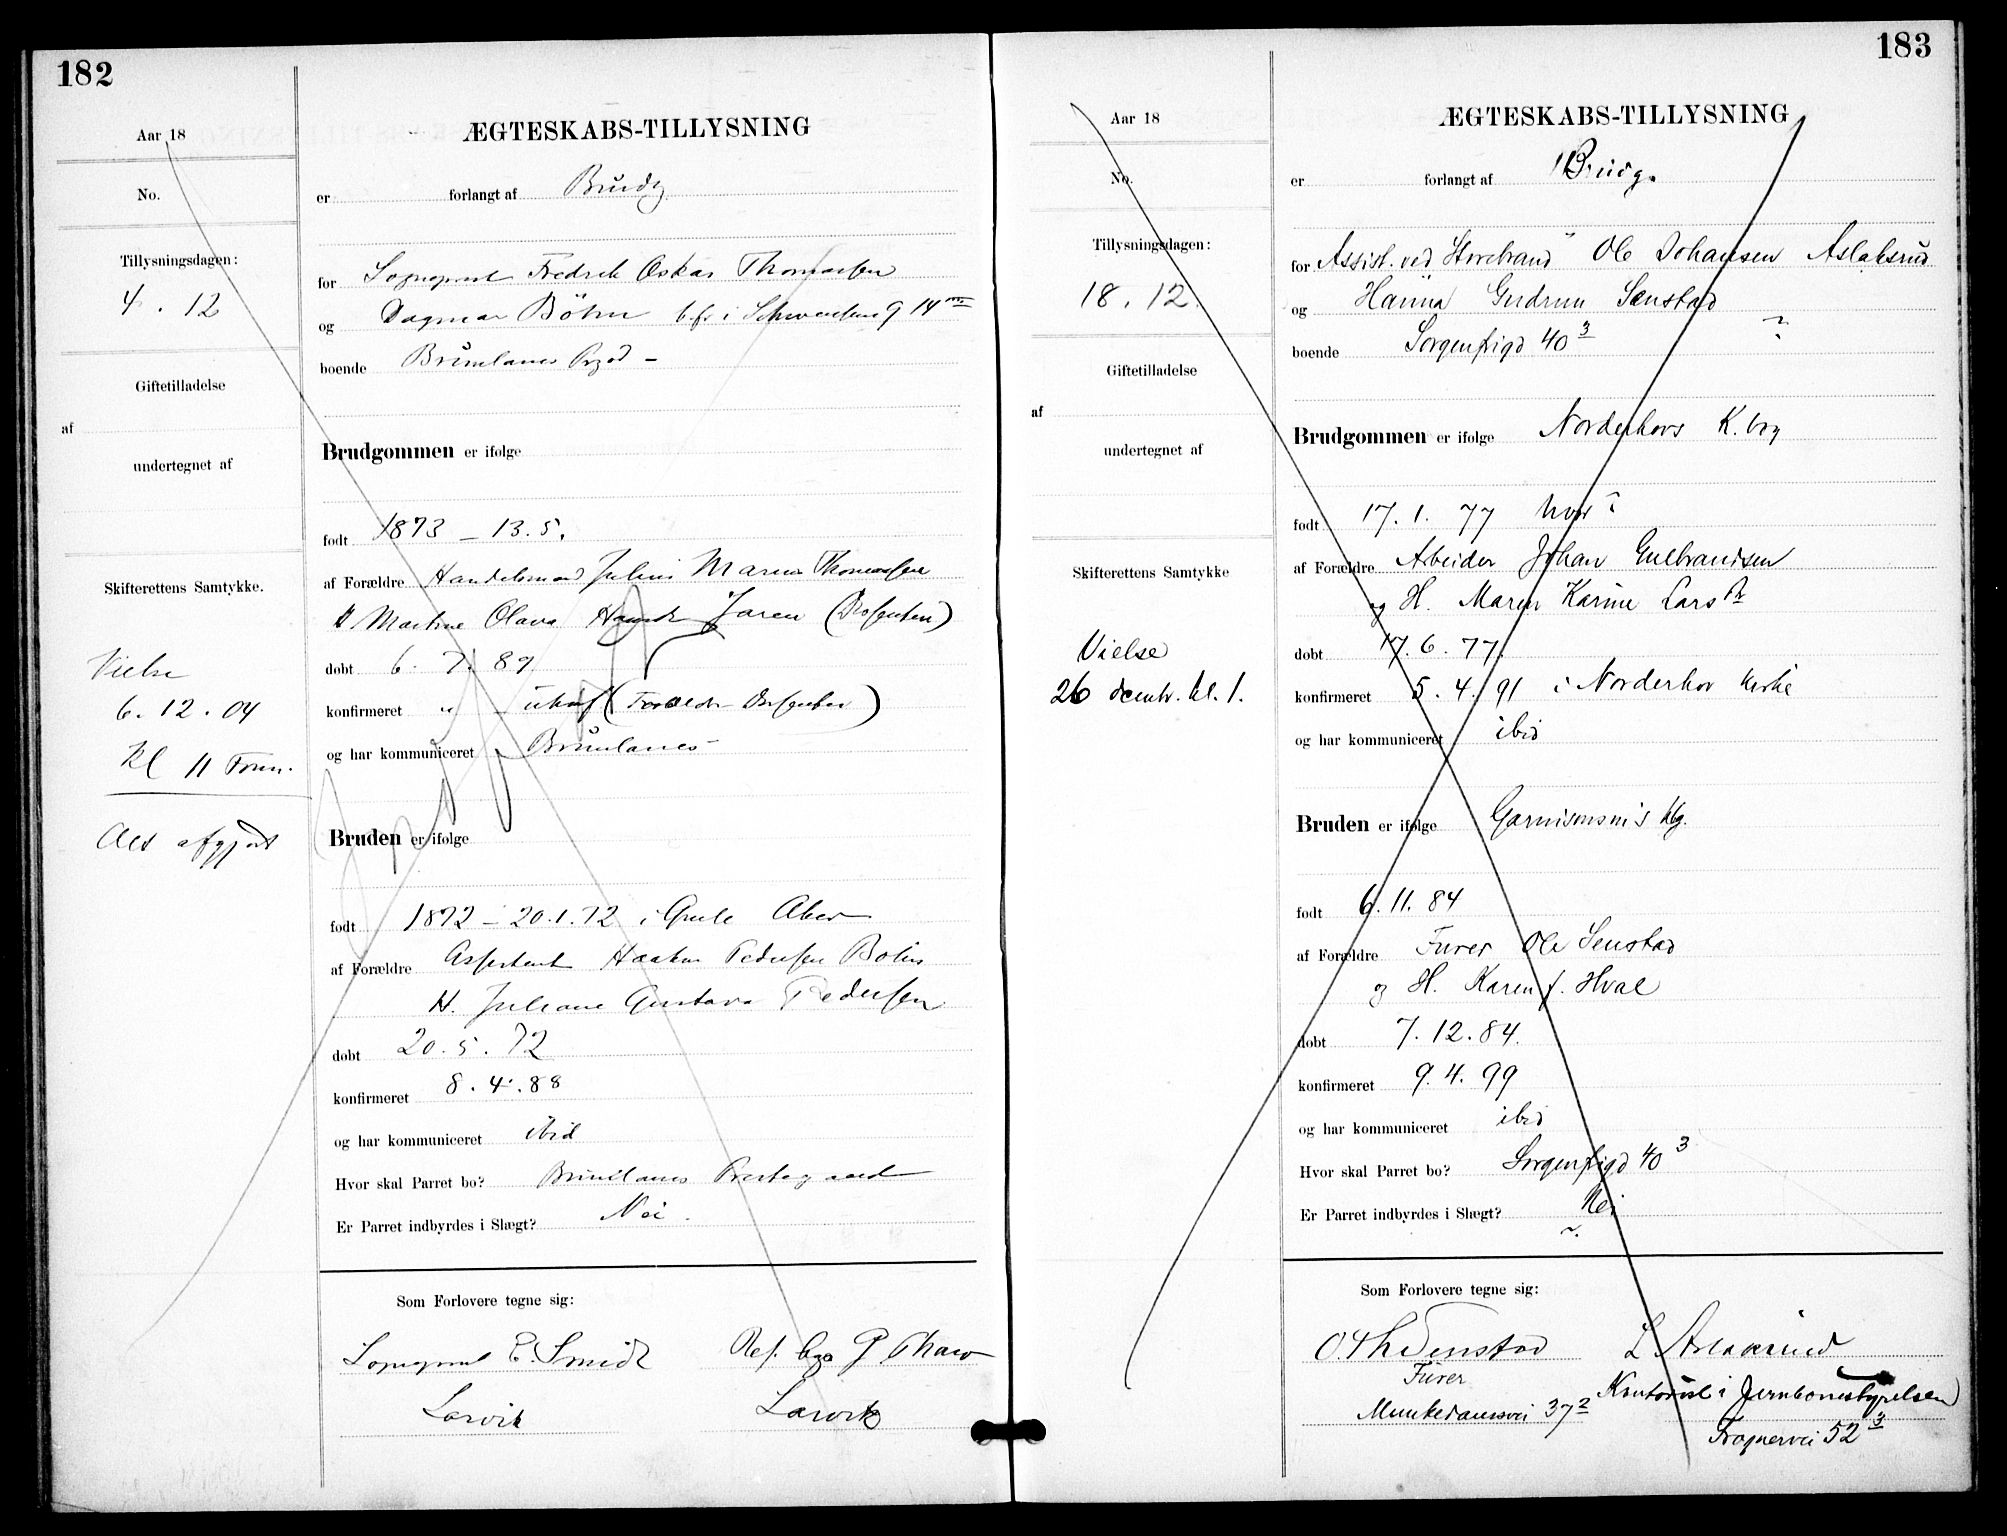 182
Aar 18
No.
Tillysningsdagen:
4. 12
Giftetilladelse
af
undertegnet af
Skifterettens Samtykke.
Vielse
6. 12. 04
Kl 11 Form.
Alt afgjort
ÆGTESKABS-TILLYSNING
er forlangt af Brudg
for Sogneprest Fredrik Oskar Thomassen
og Dagmar Böhn
boende Brunlanes Prgd –
Brudgommen er ifølge
født 1873 – 13. 5.
af Forældre Handelsmand Julius Thomassen
H. Martine Olava Jaren (Dissenter)
døbt 6. 7. 89
konfirmeret " (Forældr Dissenter)
og har kommuniceret Brunlanes
Bruden er ifølge
født 1872 – 20.1.72 i Aker
af Forældre Assistent Haakon Pedersen
H. Juliane Gustava Pedersen
døbt 20. 5. 72
konfirmeret 8. 4. 88
og har kommuniceret ibid
Hvor skal Parret bo? Brunlanes Prestegaard
Er Parret indbyrdes i Slægt? Nei.
Som Forlovere tegne sig:
Sogneprest E. Smidt
Larvik Larvik
183
Aar 18
No.
Tillysningsdagen:
18. 12.
Giftetilladelse
af
undertegnet af
Skifterettens Samtykke
Vielse
26 decmbr. kl. 1.
ÆGTESKABS-TILLYSNING
er forlangt af Brudg.
for Assist. ved "Storebrand" Ole Johansen Aslaksrud
og Hanna Gudrun Senstad
boende Sorgenfrigd 40 3 ?
Brudgommen er ifølge Norderhovs K. bog
født 17. 1. 77 hvor?
af Forældre Arbeider Johan Gulbrandsen
og H. Maren Karine Larsdr
døbt 17. 6. 77.
konfirmeret 5. 4. 91 i Norderhov kirke
og har kommuniceret ibid
Bruden er ifølge Garnisonsm's kbg.
født 6. 11. 84
af Forældre Furer Ole Senstad
og H. Karen f. Hval
døbt 7. 12. 84.
konfirmeret 9. 4. 99
og har kommuniceret ibid
Hvor skal Parret bo? Sorgenfrigd 40 3
Er Parret indbyrdes i Slægt? Nei
Som Forlovere tegne sig:
Senstad L Aslaksrud
Furer
Kontorist i Jernbanestyrelsen
Munkedamsvei 37 2
Frognervei 52 3